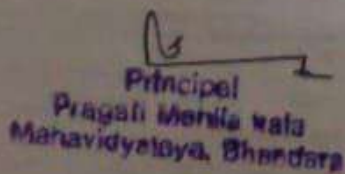 Principal
Pragati Mahila Kala
Mahavidyalaya, Bhandara